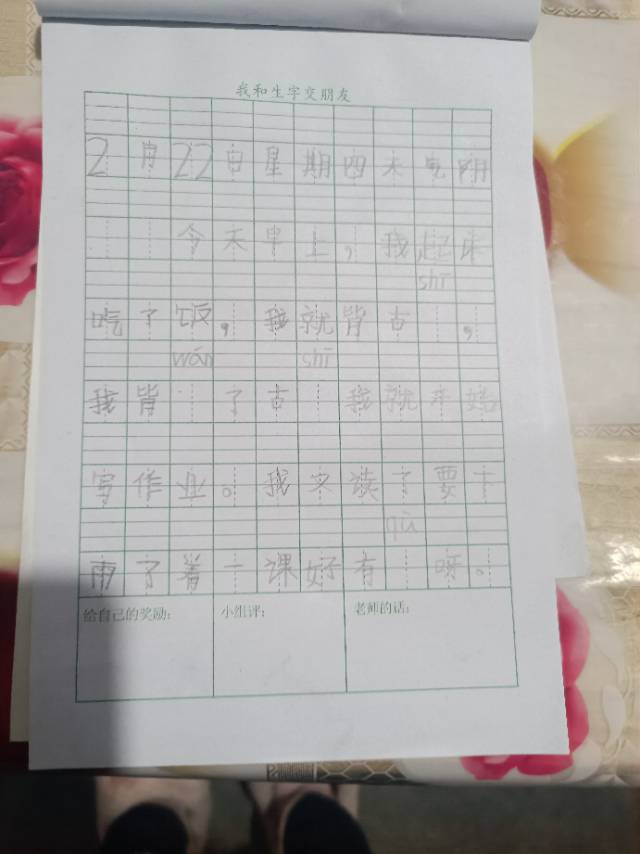 我和生字交朋友
2月22日星期四 天气阴
今天早上，我起床
shī
吃了饭，我就背古，
wán shī
我背了古我就开始
写作业。我又读了要下
qù
雨了着一课好有呀。
给自己的奖励： 小组评： 老师的话：